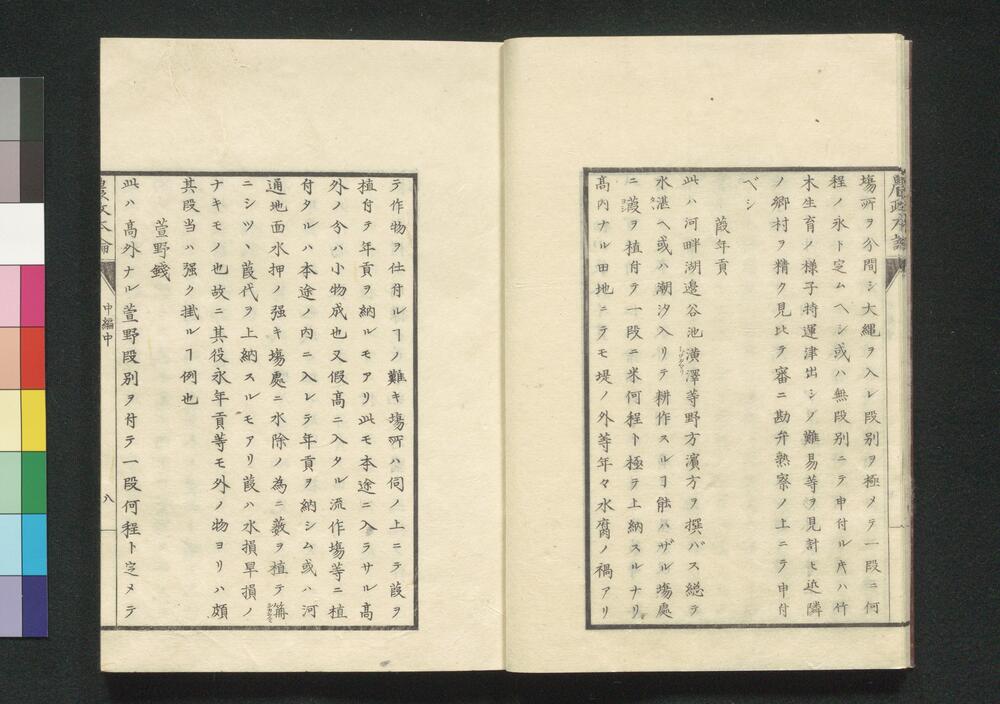 農政本論
塲所ヲ分間シ大繩ヲ入レ段別ヲ極メテ一段ニ何
程ノ永ト定ムヘシ或ハ無段別ニテ申付ル𪜈ハ竹
木生育ノ様子持運津出シノ難易等ヲ見計ヒ近隣
ノ郷村ヲ精ク見比テ審ニ勘弁熟察ノ上ニテ申付
ベシ
葭年貢
此ハ河畔湖邊谷池潢澤等野方濱方ヲ撰バス総テ
水湛ヘ或ハ潮汐入リテ耕作スルヿ能ハザル塲處
ニ葭ヲ植付テ一段ニ米何程ト極テ上納スルナリ
高内ナル田地ニテモ堤ノ外等年々水腐ノ禍アリ
テ作物ヲ仕付ルヿノ難キ塲所ハ伺ノ上ニテ葭ヲ
植付テ年貢ヲ納ルモアリ此モ本途ニ入ラサル高
外ノ分ハ小物成也又假高ニ入タル流作塲等ニ植
付タルハ本途ノ内ニ入レテ年貢ヲ納シム或ハ河
通地面水押ノ强キ塲處ニ水除ノ為ニ薮ヲ植テ篝
ニシツヽ葭代ヲ上納スルモアリ葭ハ水損旱損ノ
ナキモノ也故ニ其役永年貢等モ外ノ物ヨリハ頗
其段当ハ强ク掛ルヿ例也
萱野錢
此ハ高外ナル萱野段別ヲ付テ一段何程ト定メテ
農政本論
中編中
八